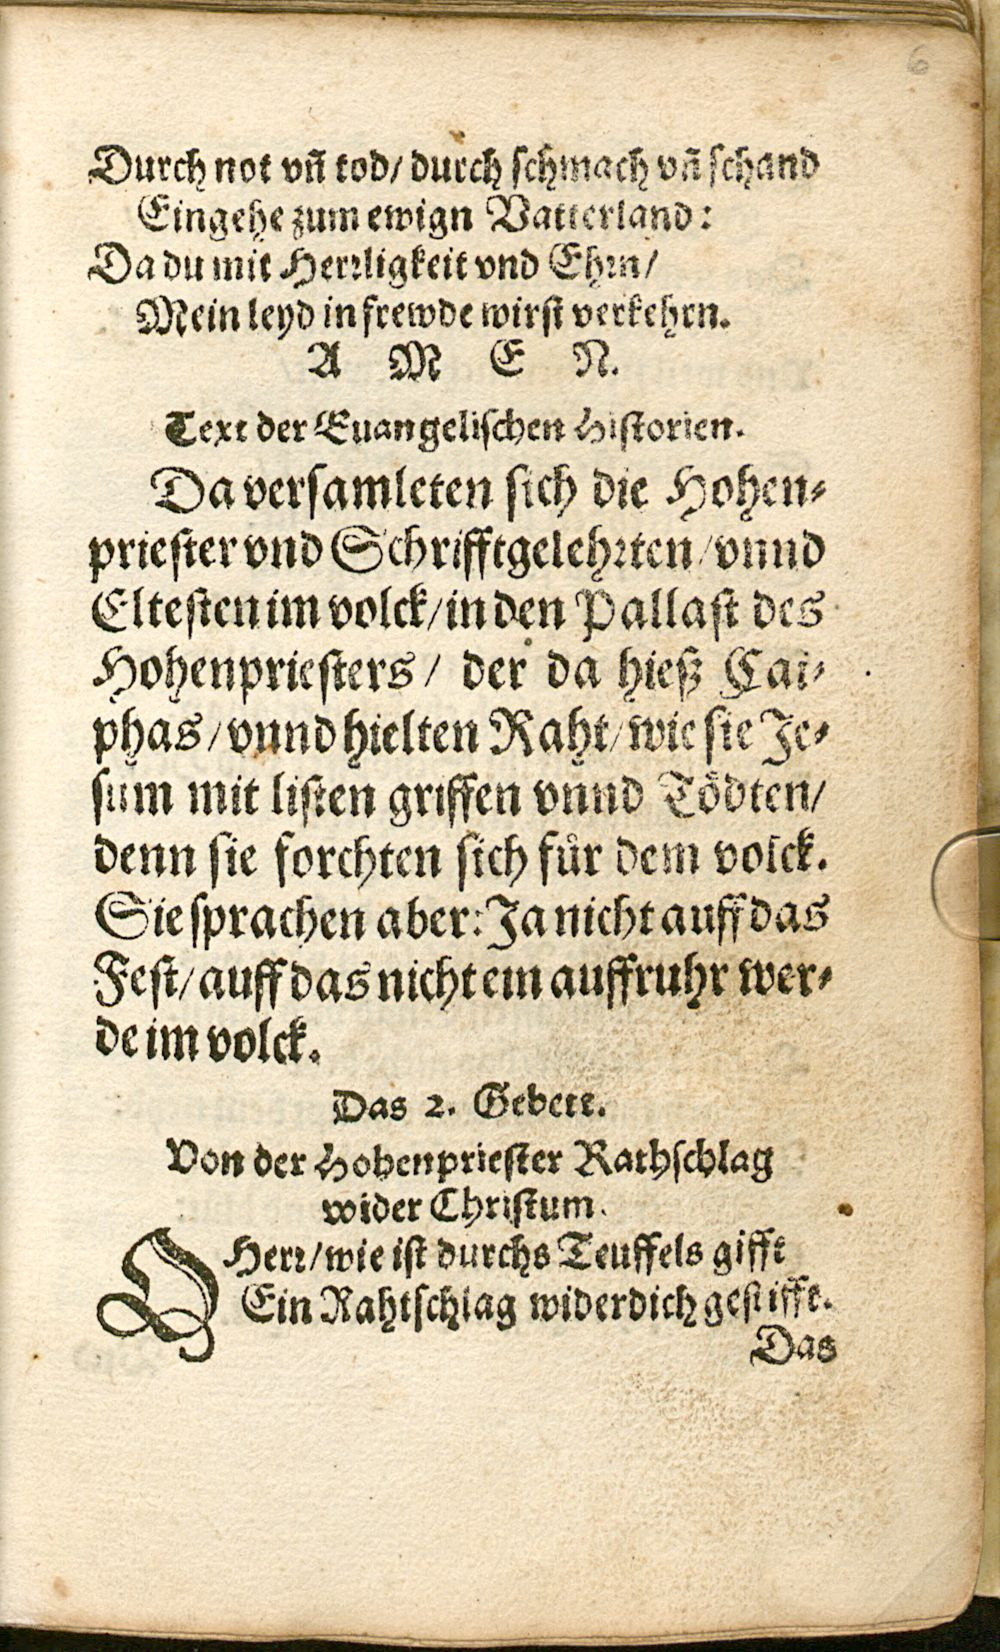 6
Durch not vñ tod/ durch schmach vñ schand
Eingehe zum ewign Vatterland:
Da du mit Herꝛligkeit vnd Ehꝛn/
Mein leyd in frewde wirst verkehrn.
A M E N.
Text der Euangelischen Historien.
Da versamleten sich die Hohen-
priester vnd Schrifftgelehꝛten/ vnnd
Eltesten im volck/ in den Pallast des
Hohenpriesters/ der da hieß Cai-
phas/ vnnd hielten Raht/ wie sie Je-
sum mit listen griffen vnnd Tödten/
denn sie forchten sich fuͤr dem volck.
Sie sprachen aber: Ja nicht auff das
Fest/ auff das nicht ein auffruhr wer-
de im volck.
Das 2. Gebett.
Von der Hohenpriester Rathschlag
wider Christum.
O Herꝛ/ wie ist durchs Teuffels gifft
Ein Rahtschlag wider dich gestifft.
Das